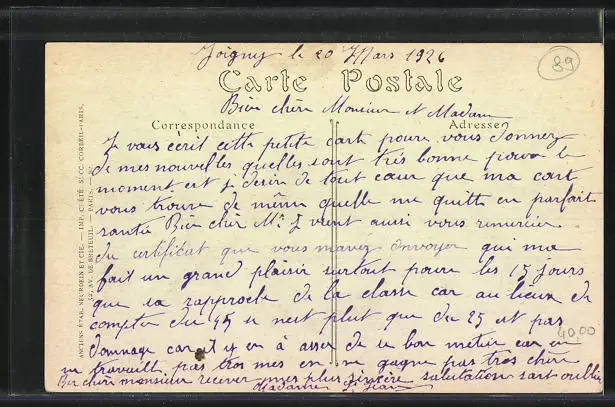 Joigny le 20 Mars 1926
89
Carte Postale
Bien chère Monsieur et Madame
Correspondance
Adresse
Je vous écrit cette petite carte pour vous donnez
de mes nouvelles quelles sont très bonne pour le
moment et je désire de tout cœur que ma cart
vous trouve de même quelle me quitte en parfait
santié Bien chèr Mr. J vient aussi vous remercier
du certificat que vous mavez envoyer qui ma
fait un grand plaisir surtout pour les 15 jours
que sa rapproche de la classe car au lieux de
compter du 45 se nest plut que du 25 et pas
dommage car il y en à asser de ce bon métier car on
ne travaille pas tros mes on ne gagne pas très chère
Bien chère monsieur recever mes plus sincère salutation sant oublier
Madame Jean
40.00
ANCIENS ÉTAB. NEURDEIN ET CIE. — IMP. CRÉTÉ, SUCC. CORBEIL-PARIS.
52, AV. DE BRETEUIL. — PARIS.